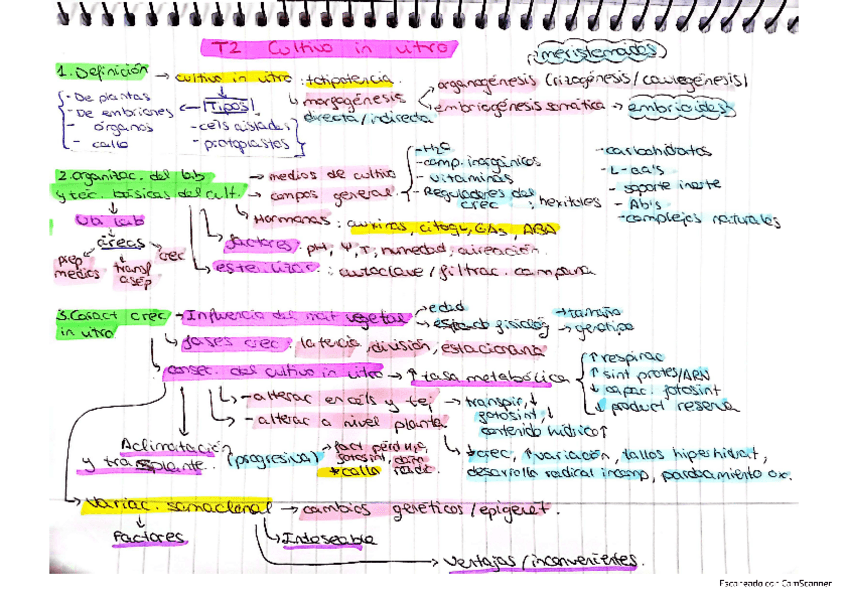 T2 Cultivo in vitro
meristemoides
1. Definición → cultivo in vitro : totipotencia.
organogénesis (rizogénesis / caulogénesis)
morfogénesis
directa / indirecta
embriogénesis somática → embrioides
Tipos
- De plantas
- De embriones
- órganos
- callo
- céls aisladas
- protoplastos
2. Organizac. del lab
y téc. básicas del cult.
→ medios de cultivo
→ compos general
- H2O
- comp. inorgánicos
- vitaminas
- Reguladores del
crec
, hexitoles
- carbohidratos
- L-aa's
- soporte inerte
- Ab's
- complejos naturales
Hormonas : auxinas, citoqu, GAs, ABA
Un lab
áreas
prep
medios
transf
asép
crec
factores : pH, Ψ, T, humedad, aireación.
esterilizac. : autoclave / filtrac. campana
3. Caract crec
in vitro
Influencia del mat vegetal
→ edad
→ tamaño
→ genotipo
fases crec : latencia, división, estacionaria
consec. del cultivo in vitro → ↑ tasa metabólica
↑ respirac
↑ sint protes/ARN
↓ capac. fotosint
↓ product reserva
- alterac en céls y tej
→ transpir, ↓
fotosint, ↓
contenido hídrico ↑
- alterac a nivel planta
crec, ↑ variación, tallos hiperhidrat,
desarrollo radical incomp, pardeamiento ox.
Aclimatación
y trasplante.
(progresiva)
→ fact pérd H2O
fotosint,
* callo
radic.
Variac. somaclonal → cambios genéticos / epigenet.
Factores
Indeseable
ventajas / inconvenientes.
Escaneado con CamScanner